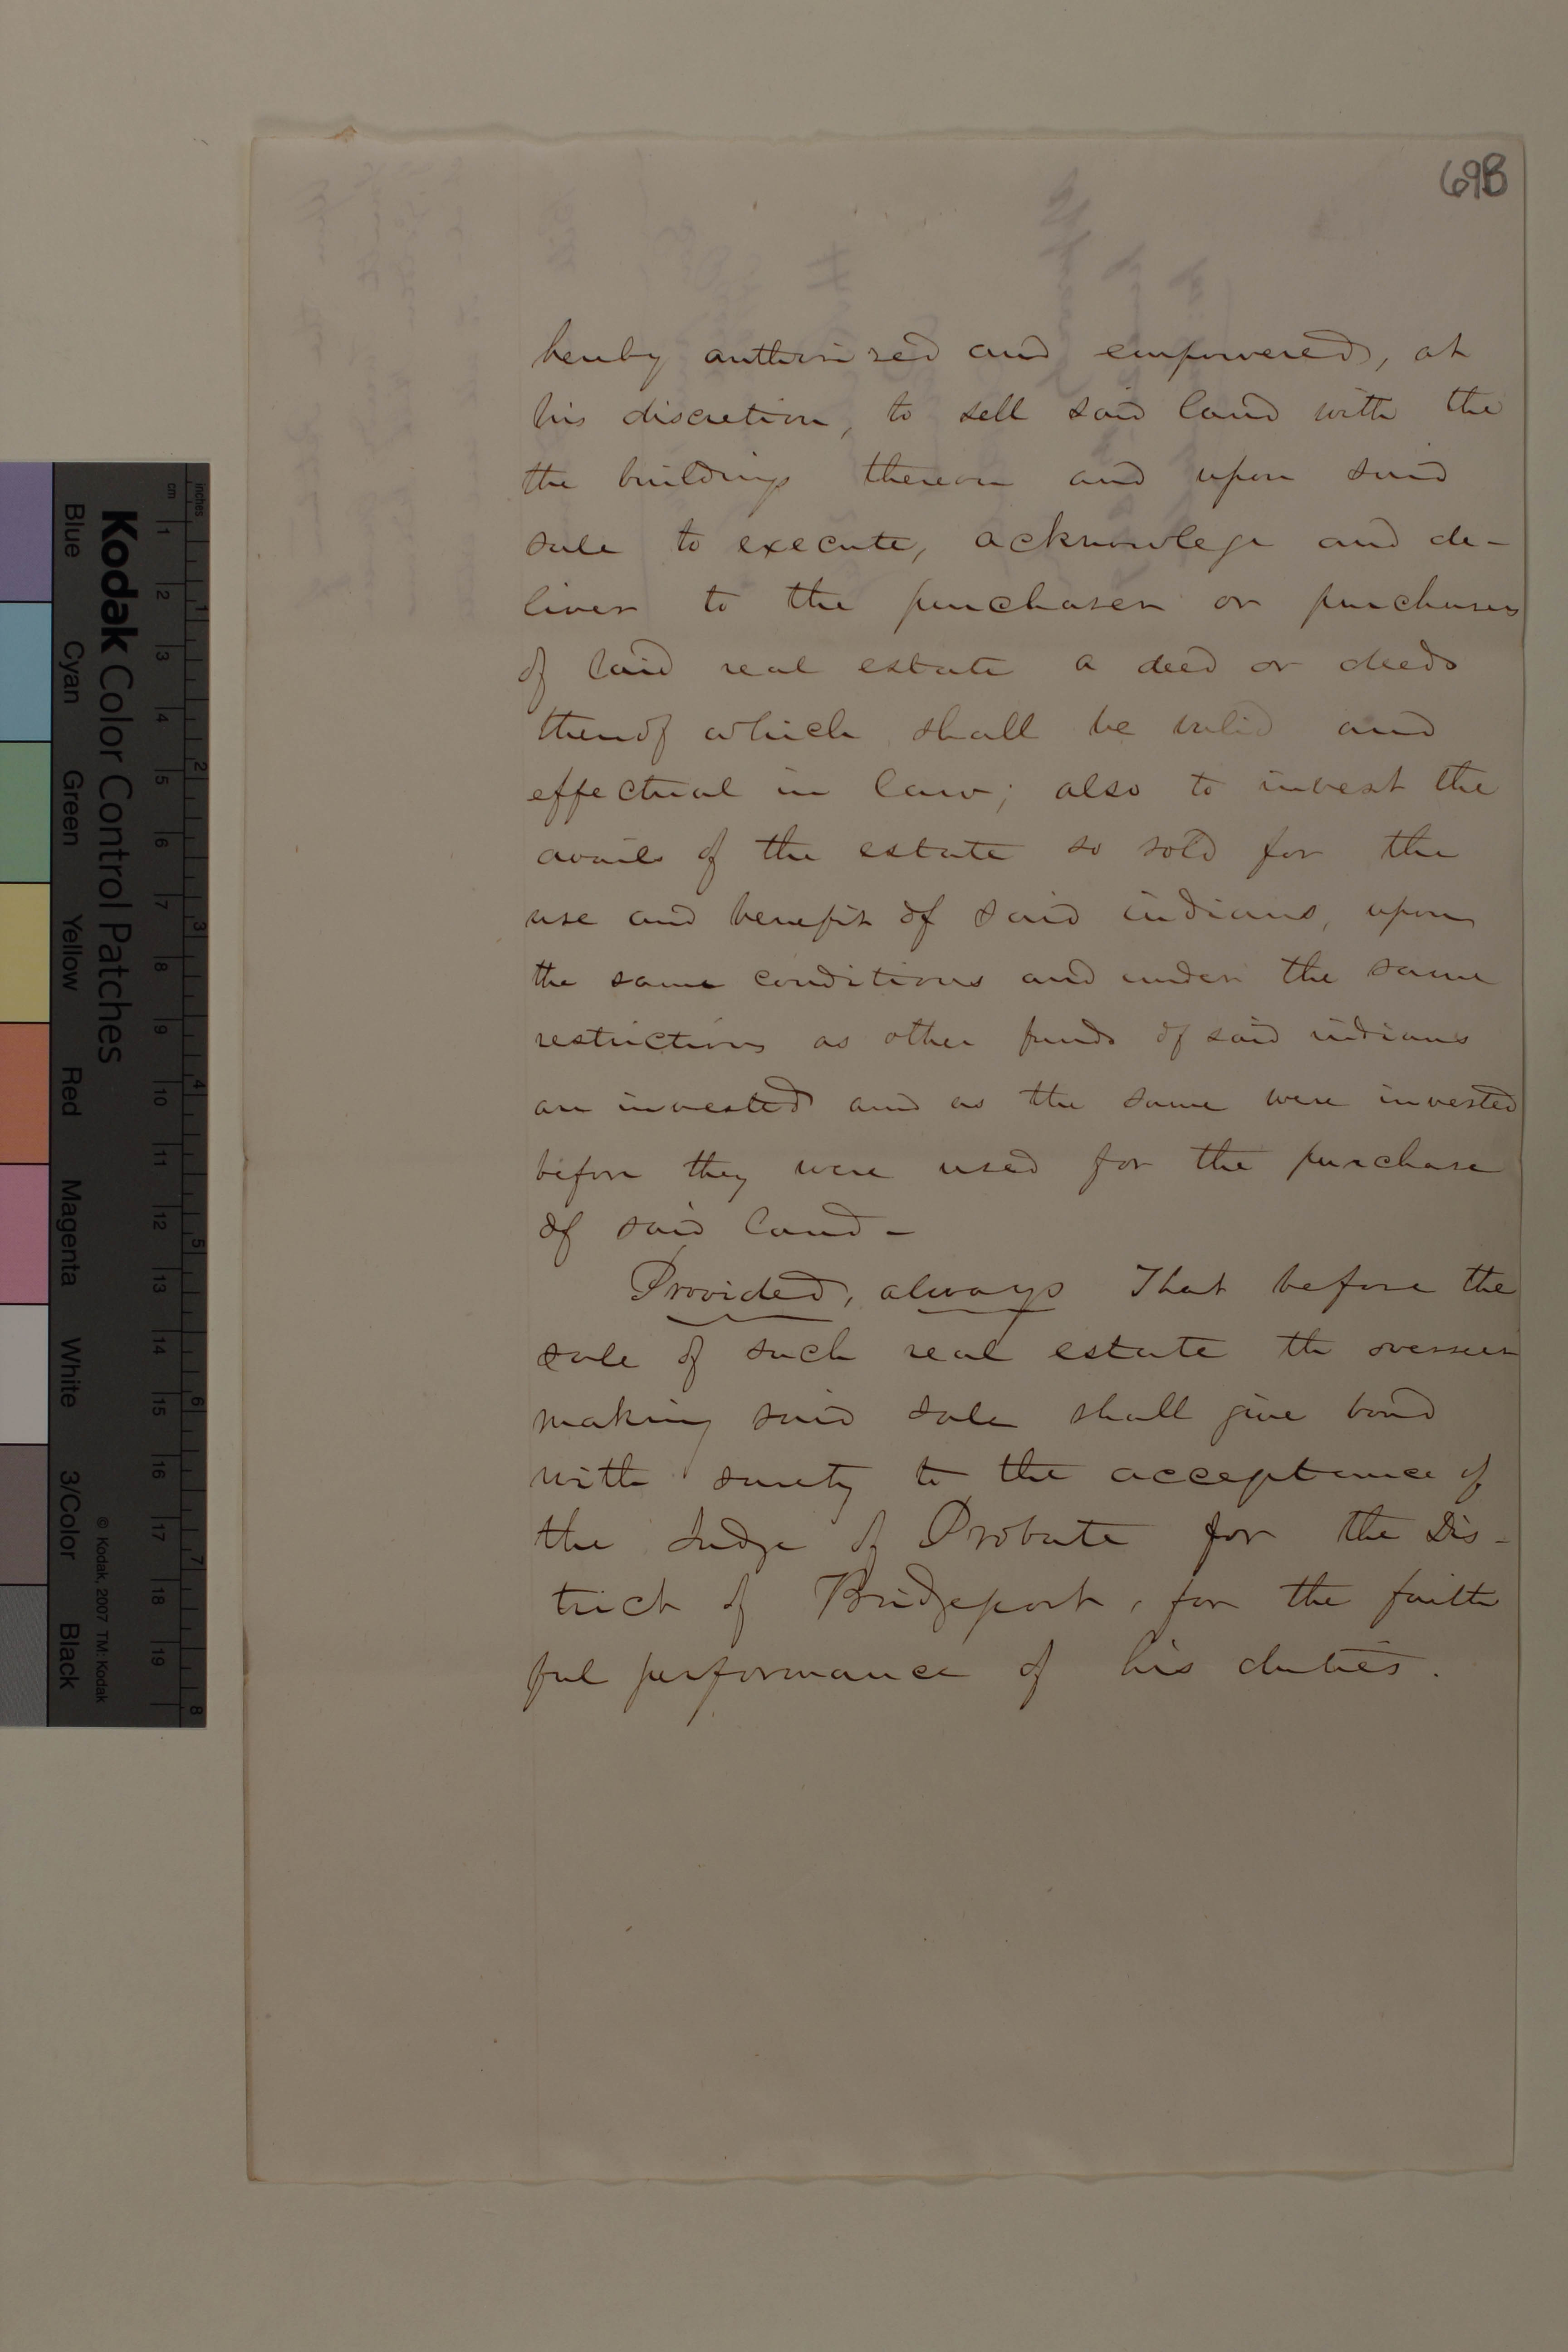 69B
hereby authorised and empowered, at
his discretion, to sell said land with the
the buildings thereon and upon said
sale to execute, acknowlege and de-
liver to the purchaser or purchasers
of said real estate a deed or deeds
thereof which shall be valid and
effectual in law; also to invest the
avails of the estate so sold for the
use and benefit of said indians, upon
the same conditions and under the same
restrictions as other funds of said indians
are invested and as the same were invested
before they were used for the purchase
of said land -
Provided, always That before the
sale of such real estate the overseer
making said sale shall give bond
with surety to the acceptance of
the Judge of Probate for the Dis-
trict of Bridgeport, for the faith
ful performance of his duties.
Kodak Color Control Patches
© Kodak, 2007 TM: Kodak
inches
cm
1 2 3 4 5 6 7 8
1 2 3 4 5 6 7 8 9 10 11 12 13 14 15 16 17 18 19
Blue Cyan Green Yellow Red Magenta White 3/Color Black